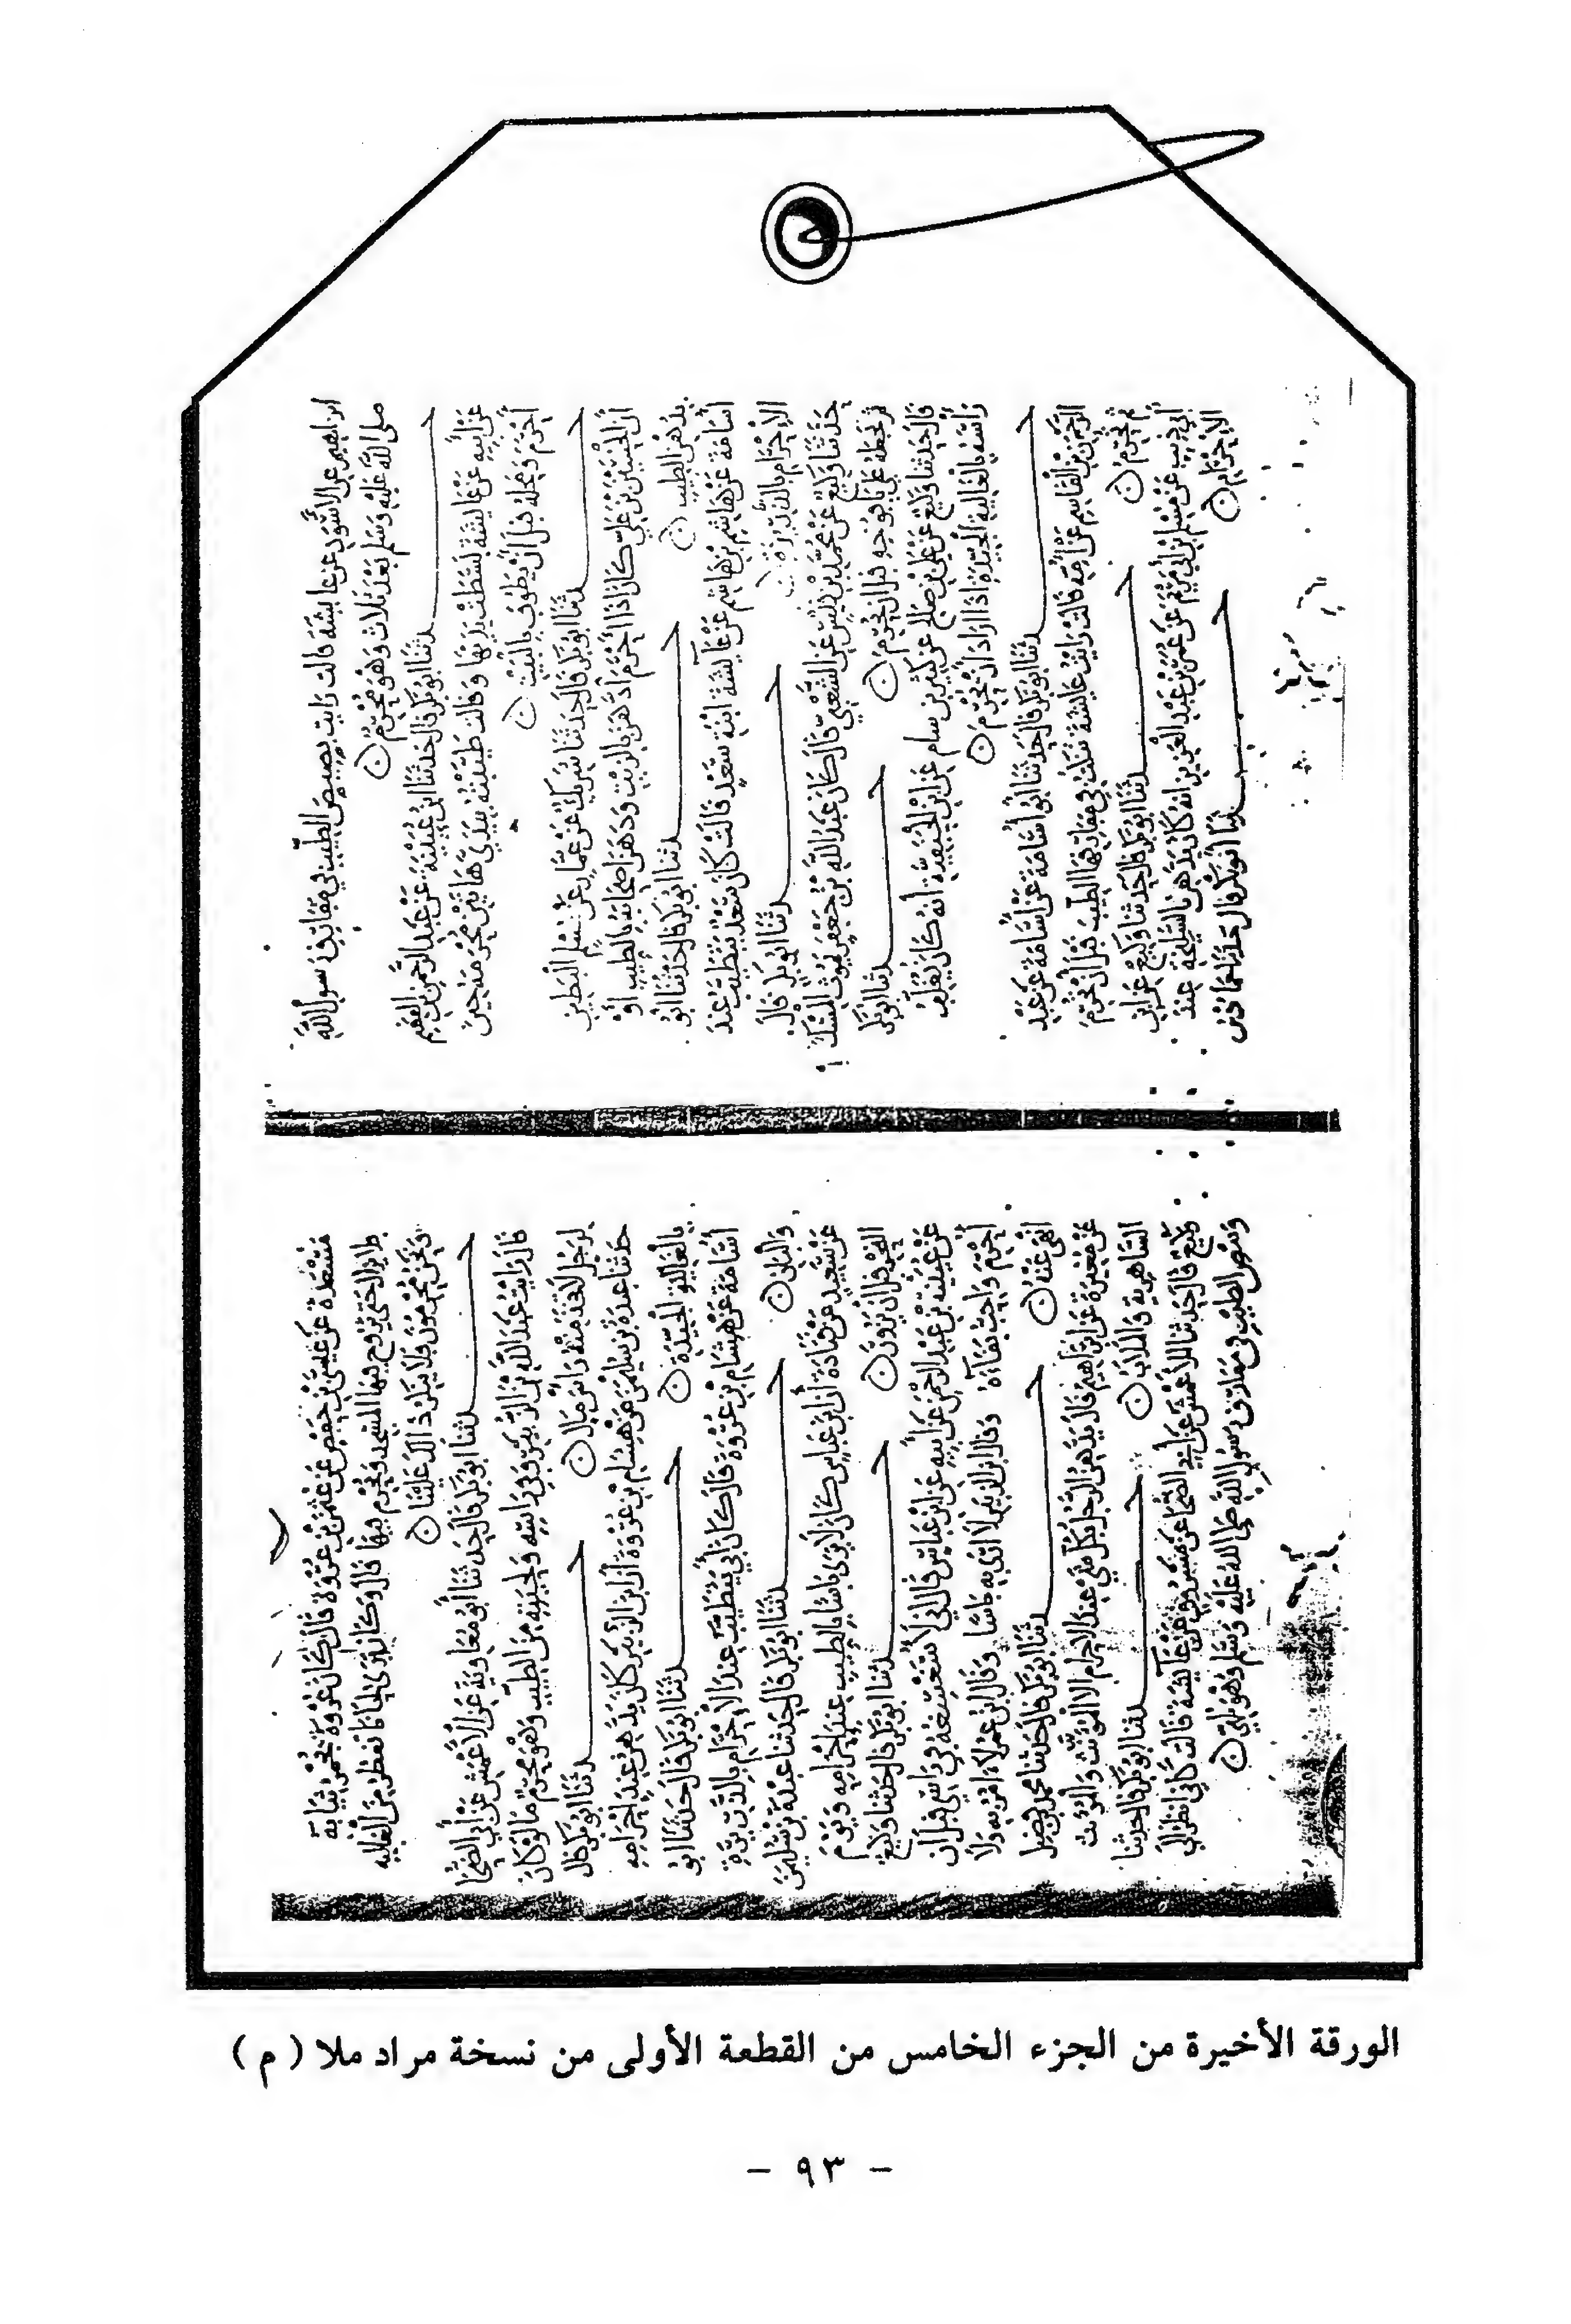 ابراهيم عن الأسود عن عايشة قالت رايت بصيص الطيب في مفارق رسول الله
صلى الله عليه وسلم بعد ثلاث وهو محرم
حدثنا ابو بكر قال حدثنا ابن عيينة عن عبد الرحمن بن القسم
عن أبيه عن عايشة بسطت يديها وقالت طيبته بيدي هاتين لمحرمه حين
أحرم ولمحله قبل أن يطوف بالبيت
حدثنا ابو بكر قال حدثنا شريك عن عمار عن مسلم البطين
أن الحسين بن علي كان اذا أحرم ادهن بالزيت ودهن أصحابه بالطيب أو
بدهن الطيب حدثنا ابو بكر قال حدثنا ابو
أسامة عن هاشم بن هاشم عن عايشة ابنة سعد قالت كان سعد يتطيب عند
الإحرام بالذريرة حدثنا ابو بكر قال
حدثنا وكيع عن محمد بن قيس عن الشعبي قال كان عبد الله بن جعفر يموث المسك
ثم يجعله على يافوخه قبل ان يحرم حدثنا ابو بكر
قال حدثنا وكيع عن علي بن صالح عن كثير بن سام عن ابن الحنفية أنه كان يغلف
رأسه بالغالية الجيدة اذا اراد أن يحرم
حدثنا ابو بكر قال حدثنا أبو أسامة عن أسامة عن عبد
الرحمن بن القاسم عن أمه قالت رأيت عايشة تنكث في مفارقها الطيب قبل أن تحرم
ثم تحرم حدثنا ابو بكر قال حدثنا وكيع عن ابن
أبي ذيب عن مسلم بن أبي مريم عن عمر بن عبد العزيز انه كان يدهن بالسليخة عند
الإحرام حدثنا أبو بكر قال حدثنا حماد بن
مسعدة عن عيسى بن حفص عن عثمن بن عروة قال كان عروة يجمر ثيابه
قال وكان يرى لحانا تقطر من الغالية
ونحن محرمون فلا ينكر ذلك علينا
حدثنا ابو بكر قال حدثنا أبو معاوية عن الأعمش عن أبي الضحا
قال رأيت عبد الله بن الزبير وفي رأسه ولحيته من الطيب وهو محرم ما لو كان
لرجل لاتخذ منه رأس مال حدثنا ابو بكر قال
حدثنا عبدة بن سليمن عن هشام بن عروة أن ابن الزبير كان يدهن عند إحرامه
بالغالية الجيدة حدثنا ابو بكر قال حدثنا ابو
أسامة عن هشام بن عروة قال كان أبي يتطيب عند الإحرام بالذريرة
والبان حدثنا ابو بكر قال حدثنا عبدة بن سليمن
عن سعيد عن قتادة أن ابن عباس كان لا يرى بأسا بالطيب عند إحرامه ويوم
النحر قبل أن يزور حدثنا ابو بكر قال حدثنا وكيع
عن عيينة بن عبد الرحمن عن أبيه عن ابن عباس قال اني لأسغسغه في رأسي قبل أن
أحرم وأحب بقاءه وقال ابن الزبير لا أرى به بأسا وقال ابن عمر لا آمر به ولا
أنهى عنه حدثنا ابو بكر قال حدثنا محمد بن فضيل
عن مغيرة عن ابراهيم قال يدهن الرجل بكل شي عند الاحرام الا المؤنث والمؤنث
الساهرية والملاب حدثنا ابو بكر قال حدثنا
وكيع قال حدثنا الأعمش عن أبي الضحا عن مسروق عن عائشة قالت كأني انظر الى
وبيص الطيب في مفارق رسول الله صلى الله عليه وسلم وهو يلبي
الورقة الأخيرة من الجزء الخامس من القطعة الأولى من نسخة مراد ملا ( م )
- ٩٣ -